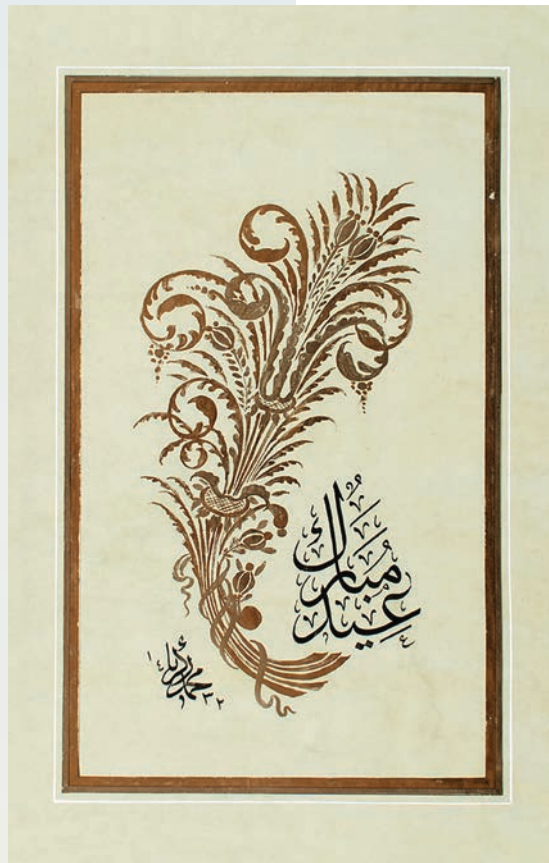 عيد مبارك
محمد
١٤٣٢